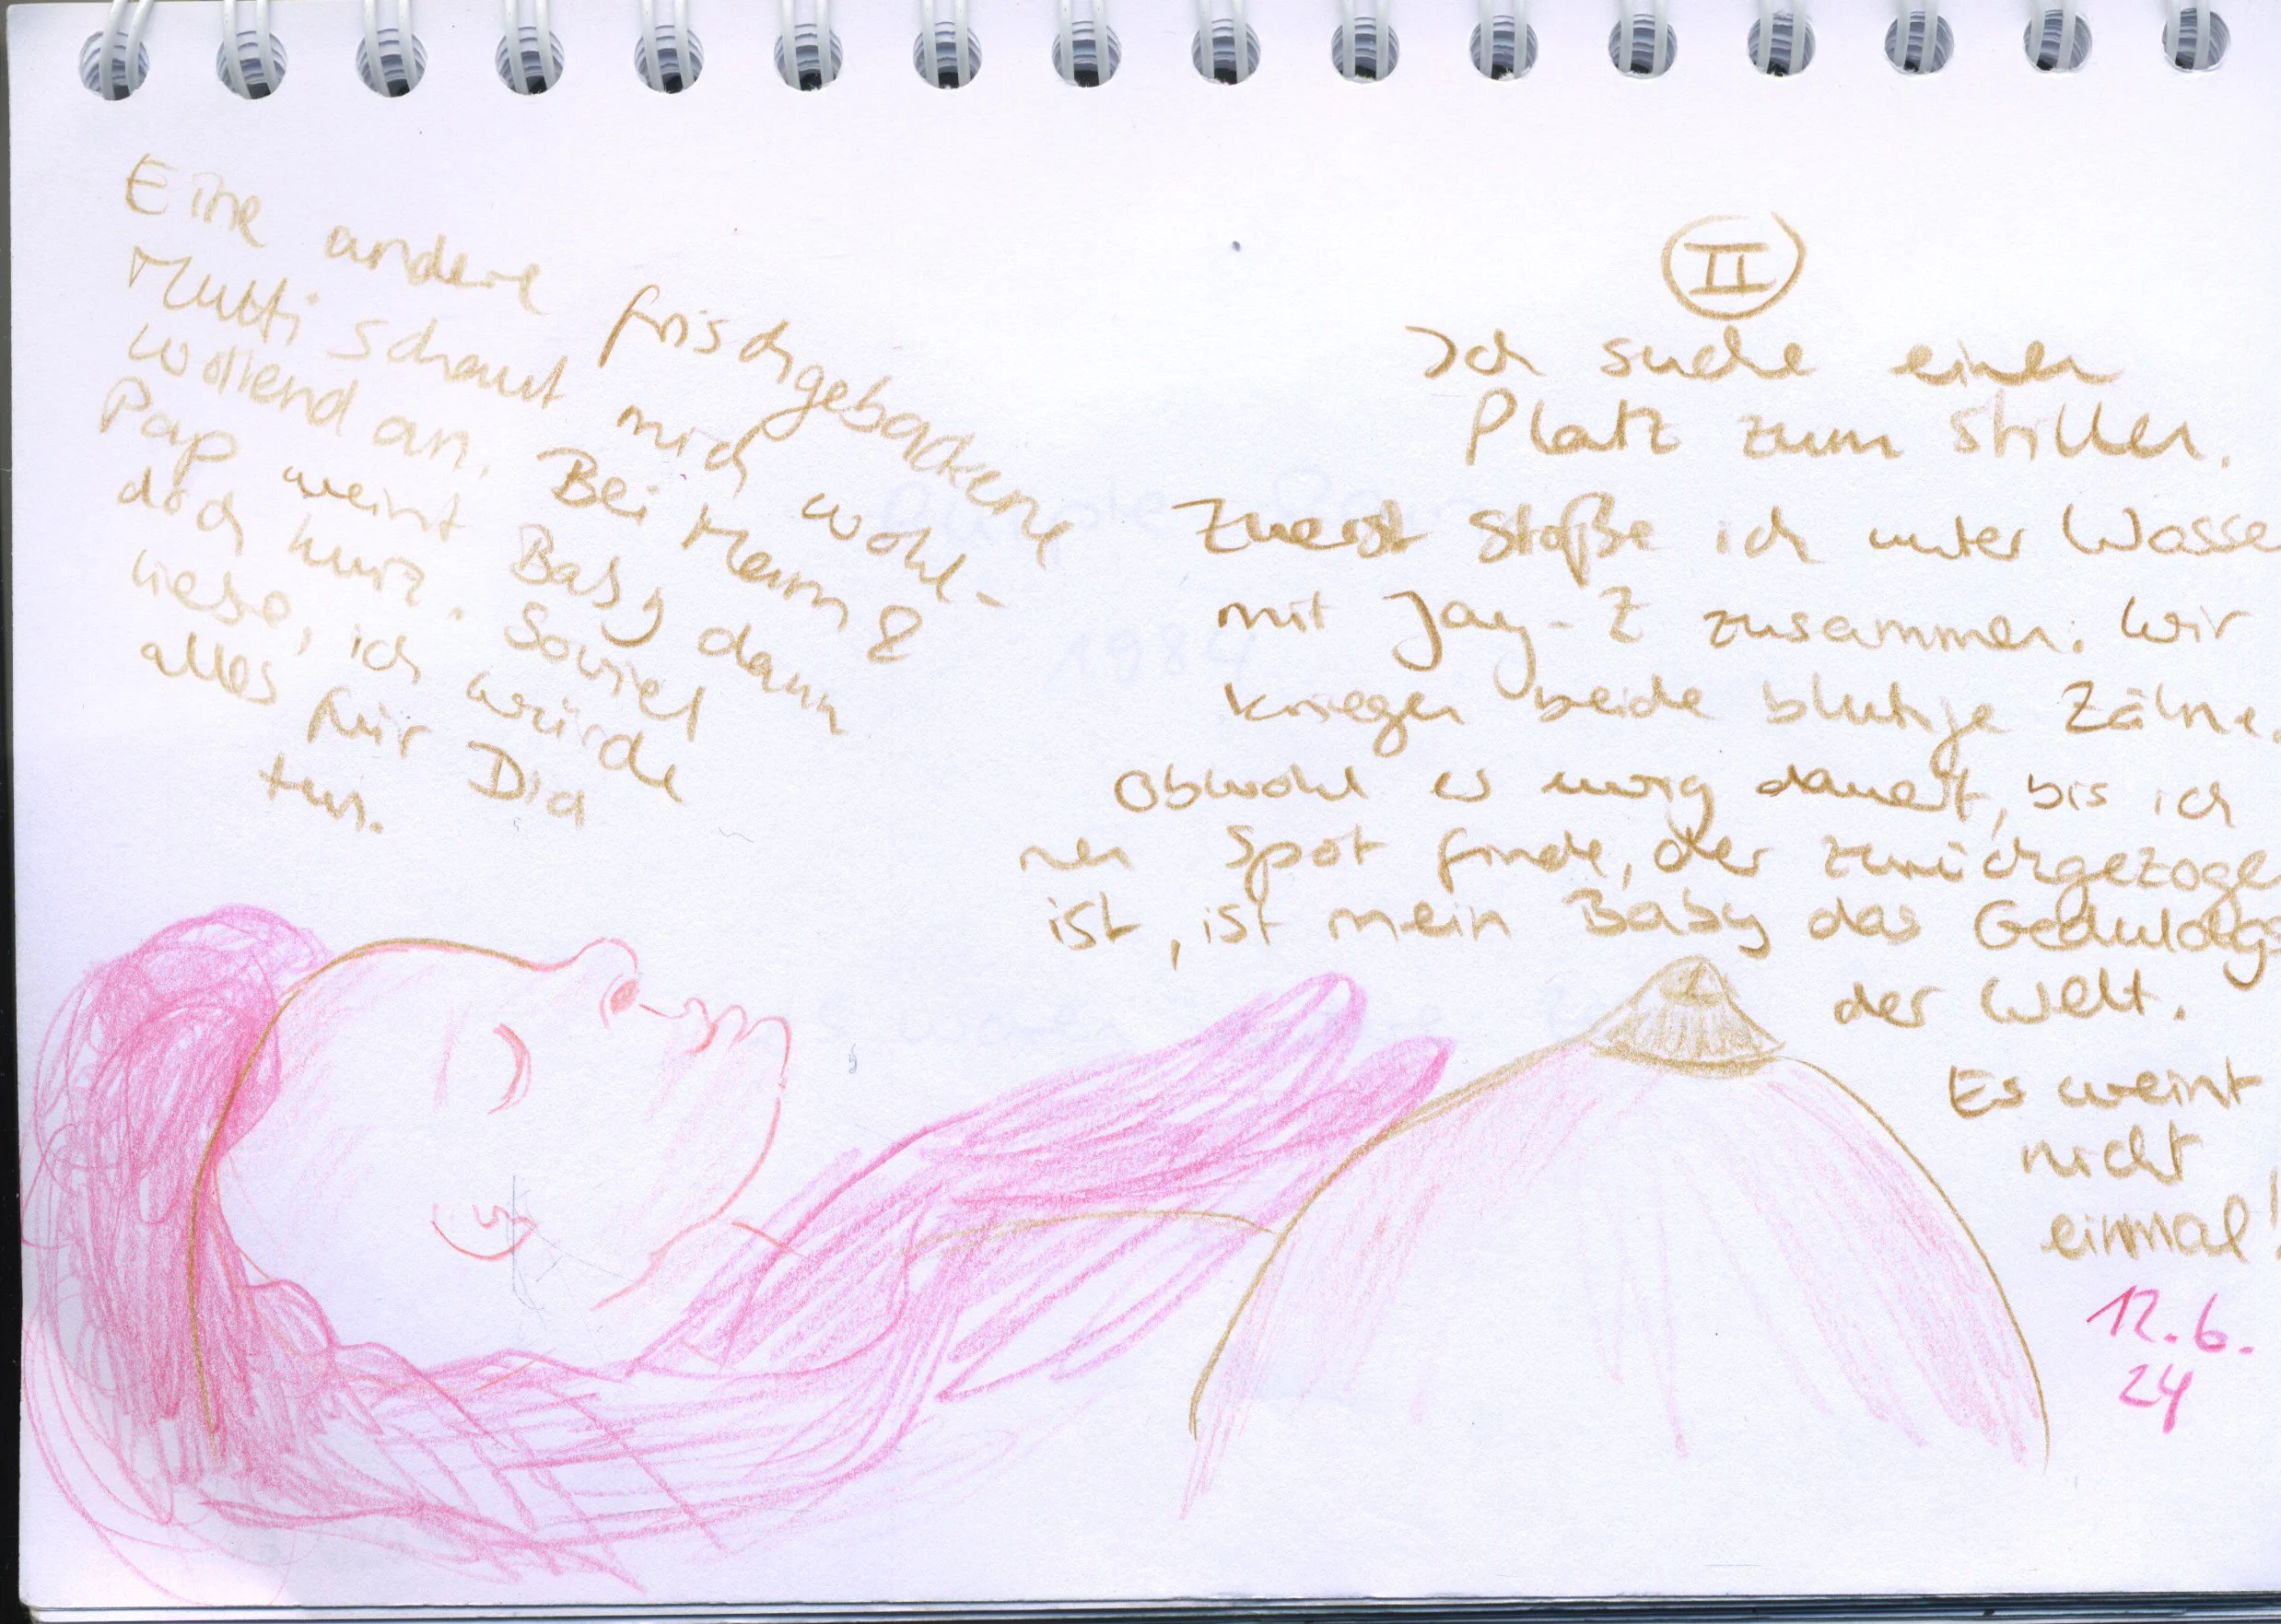 Eine andere frischgebackene
Mutti schaut mich wohl-
wollend an. Bei Mam &
Pap weint Baby dann
doch kurz. Soviel
liebe, ich würde
alles für Dia
tun.
II
Ich suche einen
Platz zum Stillen.
Zuerst stoße ich unter Wasse
mit Jay-Z zusammen. Wir
kriegen beide blutige Zähne.
Obwohl es ewig dauert, bis ich
nen Spot finde, der zurückgezoge
ist, ist mein Baby das Geduldigs
der Welt.
Es weint
nicht
einmal!
12.6.
24